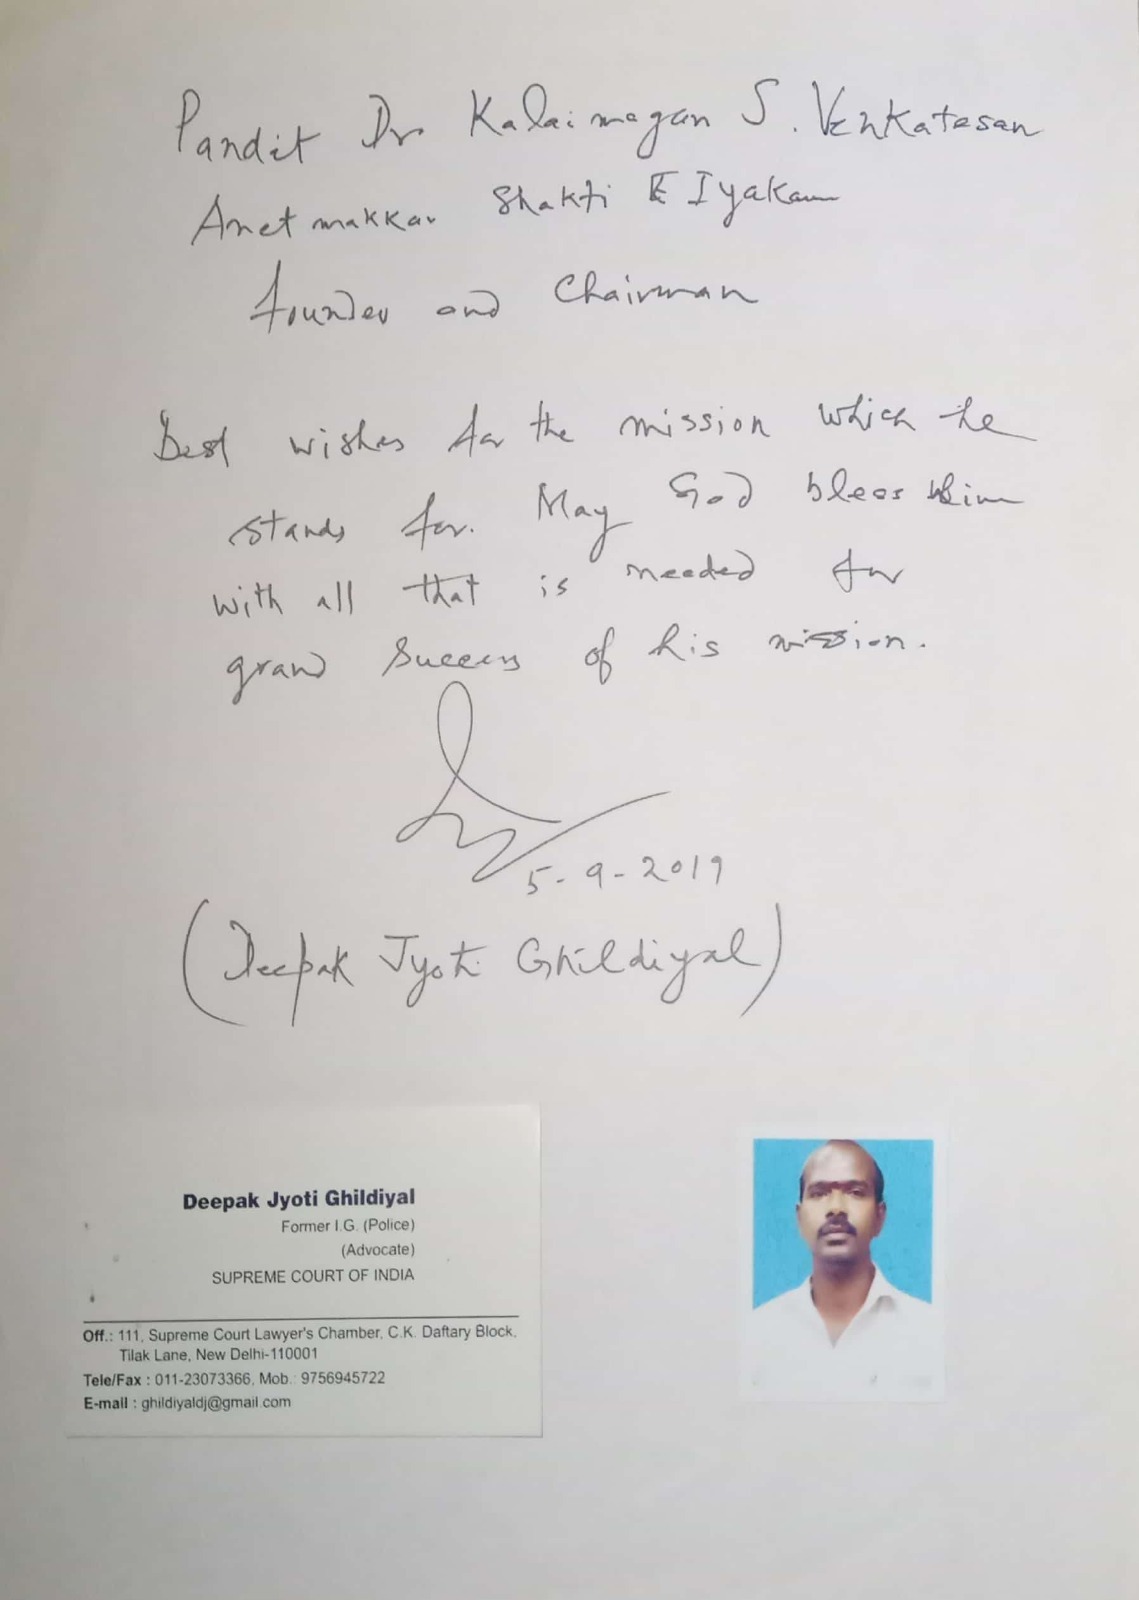 Pandit Dr Kalaimagan S. Venkatesan
Anetmakkar Shakti E Iyakam
founder and Chairman
Best wishes for the mission which he
stands for. May God bless him
with all that is needed for
grand success of his mission.
5-9-2019
(Deepak Jyoti Ghildiyal)
Deepak Jyoti Ghildiyal
Former I.G. (Police)
(Advocate)
SUPREME COURT OF INDIA
Off.: 111, Supreme Court Lawyer's Chamber, C.K. Daftary Block,
Tilak Lane, New Delhi-110001
Tele/Fax : 011-23073366, Mob.: 9756945722
E-mail : ghildiyaldj@gmail.com